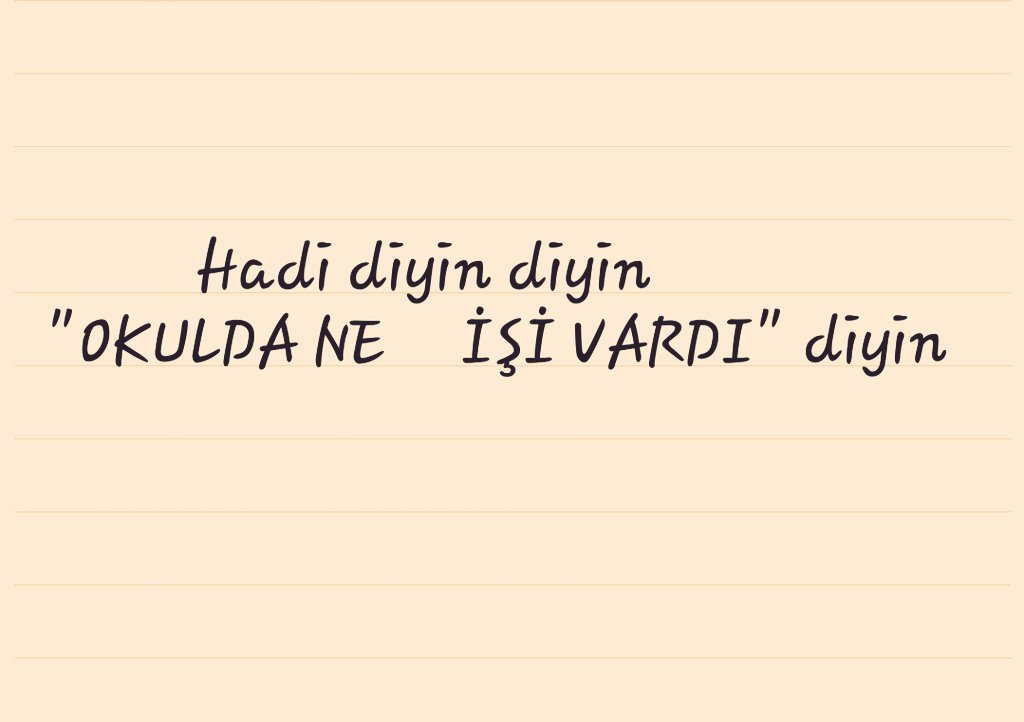 Hadi diyin diyin
"OKULDA NE İŞİ VARDI" diyin